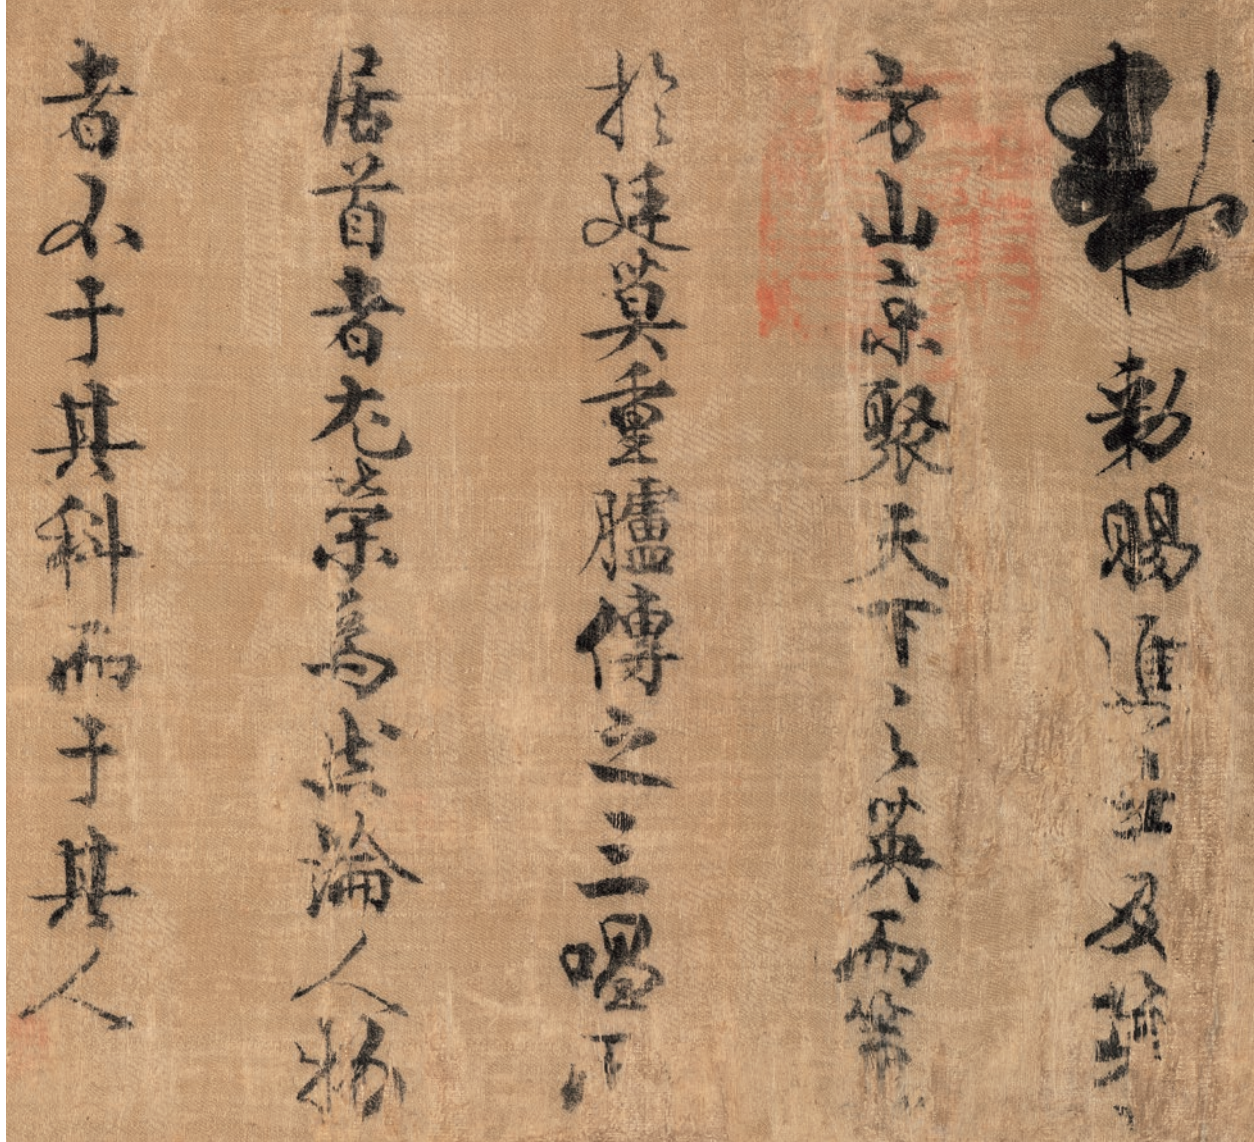 勑賜進士及第
方山京聚天下之英而策
於廷莫重臚傳之三唱
居首者尤榮焉然論人物
者不于其科而于其人